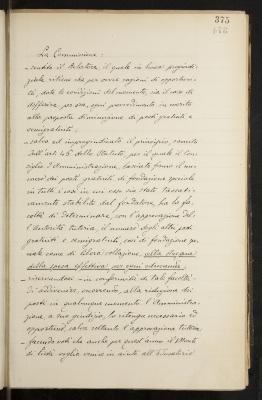 375
La Commissione:
- sentito il Relatore, il quale in linea pregiudi-
ziale ritiene che per ovvie ragioni di opportuni-
tà, date le condizioni del momento, sia il caso di
differire per ora, ogni provvedimento in merito
alla proposta diminuzione di posti gratuiti e
semigratuiti;
- salvo ed impregiudicato il principio, sancito
dall'art. 45 dello Statuto per il quale il Con-
siglio d'Amministrazione, lasciato fermo il nu-
mero dei posti gratuiti di fondazione speciale
in tutti i casi in cui esso sia stato tassati-
vamente stabilito dal fondatore, ha la fa-
coltà di determinare, con l'approvazione del-
l'Autorità tutoria, il numero degli altri posti
gratuiti e semigratuiti, così di fondazione spe-
ciale come di libera collazione, alla stregua
della spesa effettiva per ogni alunno;
- riservandosi - in conformità di tale facoltà -
di addivenire, occorrendo, alla riduzione dei
posti in qualunque momento l'Amministra-
zione, a suo giudizio, lo ritenga necessario ed
opportuno, salva soltanto l'approvazione tutoria;
- facendo voti che anche per quest'anno il Monte
di Pietà voglia venire in aiuto all'Educatorio